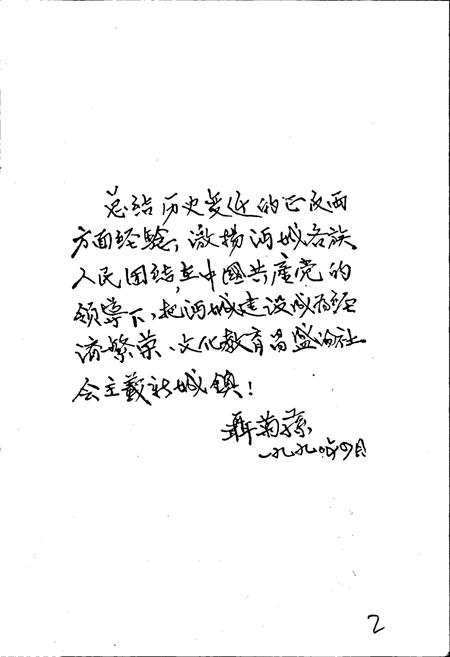 总结历史变迁的正反两
方面经验，激扬河城各族
人民团结在中國共產党的
领导下，把河城建设成为经
济繁荣、文化教育昌盛的社
会主義新城鎮！
聶菊蓀
一九九〇年四月
2